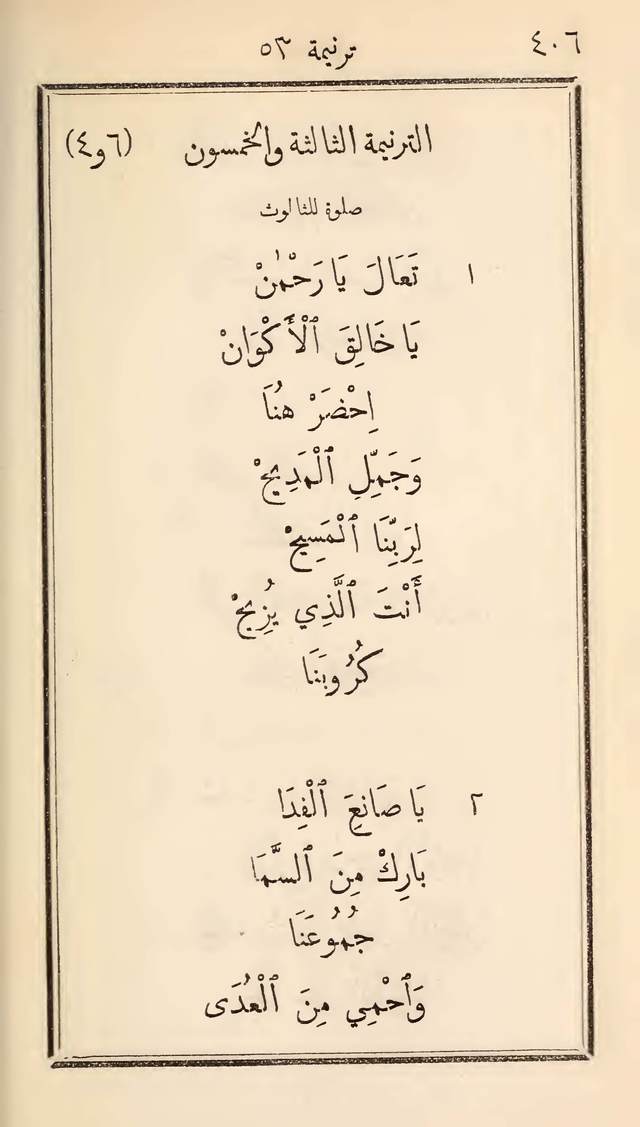 ٤٠٦ ترنيمة ٥٣
الترنيمة الثالثة والخمسون (٦و٤)
صلوة للثالوث
١ تَعَالَ يَا رَحْمٰنْ
يَا خَالِقَ ٱلْأَكْوَانْ
اِحْضَرْ هُنَا
وَجَمِّلِ ٱلْمَدِيحْ
لِرَبِّنَا ٱلْمَسِيحْ
أَنْتَ ٱلَّذِي يُزِيحْ
كُرُوبَنَا
٢ يَا صَانِعَ ٱلْفِدَا
بَارِكْ مِنَ ٱلسَّمَا
جُمُوعَنَا
وَٱحْمِي مِنَ ٱلْعُدَى